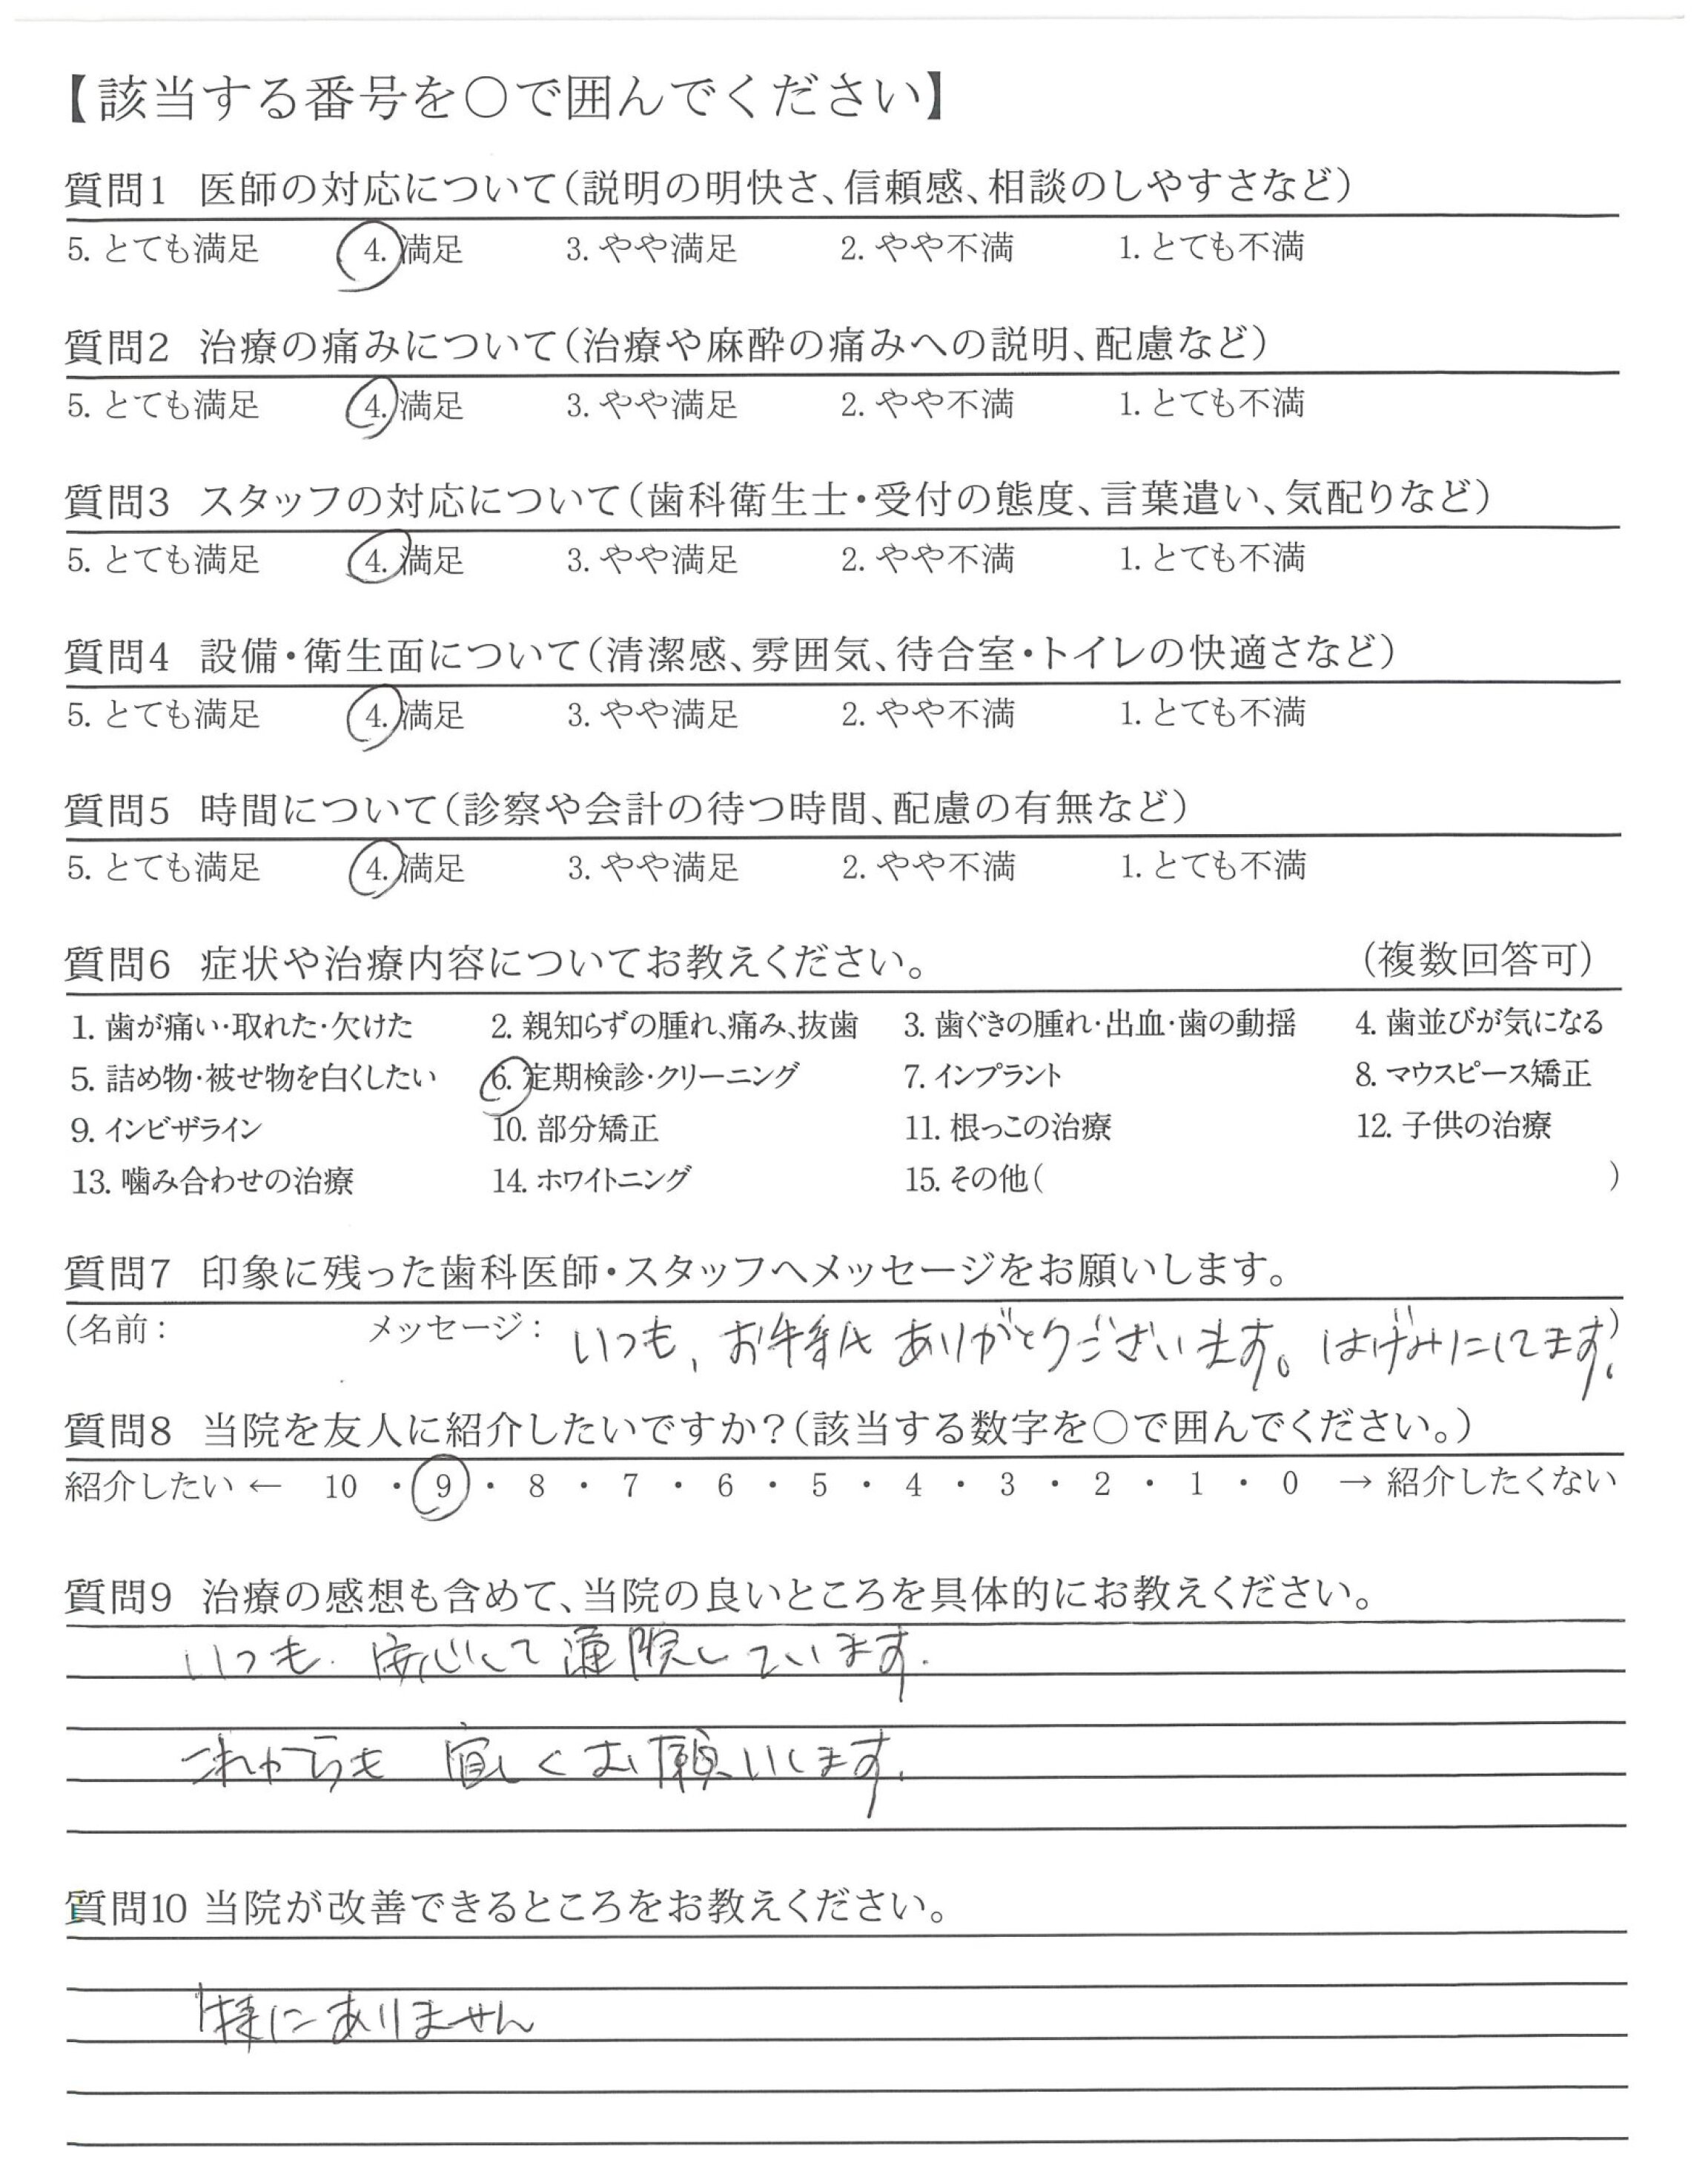 【該当する番号を〇で囲んでください】
質問1 医師の対応について(説明の明快さ、信頼感、相談のしやすさなど)
5. とても満足 4. 満足 3. やや満足 2. やや不満 1. とても不満
質問2 治療の痛みについて(治療や麻酔の痛みへの説明、配慮など)
5. とても満足 4. 満足 3. やや満足 2. やや不満 1. とても不満
質問3 スタッフの対応について(歯科衛生士・受付の態度、言葉遣い、気配りなど)
5. とても満足 4. 満足 3. やや満足 2. やや不満 1. とても不満
質問4 設備・衛生面について(清潔感、雰囲気、待合室・トイレの快適さなど)
5. とても満足 4. 満足 3. やや満足 2. やや不満 1. とても不満
質問5 時間について(診察や会計の待つ時間、配慮の有無など)
5. とても満足 4. 満足 3. やや満足 2. やや不満 1. とても不満
質問6 症状や治療内容についてお教えください。 (複数回答可)
1. 歯が痛い・取れた・欠けた 2. 親知らずの腫れ、痛み、抜歯 3. 歯ぐきの腫れ・出血・歯の動揺 4. 歯並びが気になる
5. 詰め物・被せ物を白くしたい 6. 定期検診・クリーニング 7. インプラント 8. マウスピース矯正
9. インビザライン 10. 部分矯正 11. 根っこの治療 12. 子供の治療
13. 噛み合わせの治療 14. ホワイトニング 15. その他( )
質問7 印象に残った歯科医師・スタッフへメッセージをお願いします。
(名前: メッセージ: いつも、お手紙 ありがとうございます。はげみにしてます。)
質問8 当院を友人に紹介したいですか?(該当する数字を〇で囲んでください。)
紹介したい ← 10 ・ 9 ・ 8 ・ 7 ・ 6 ・ 5 ・ 4 ・ 3 ・ 2 ・ 1 ・ 0 → 紹介したくない
質問9 治療の感想も含めて、当院の良いところを具体的にお教えください。
いつも. 安心して通院しています.
これからも 宜しくお願いします.
質問10 当院が改善できるところをお教えください。
特にありません